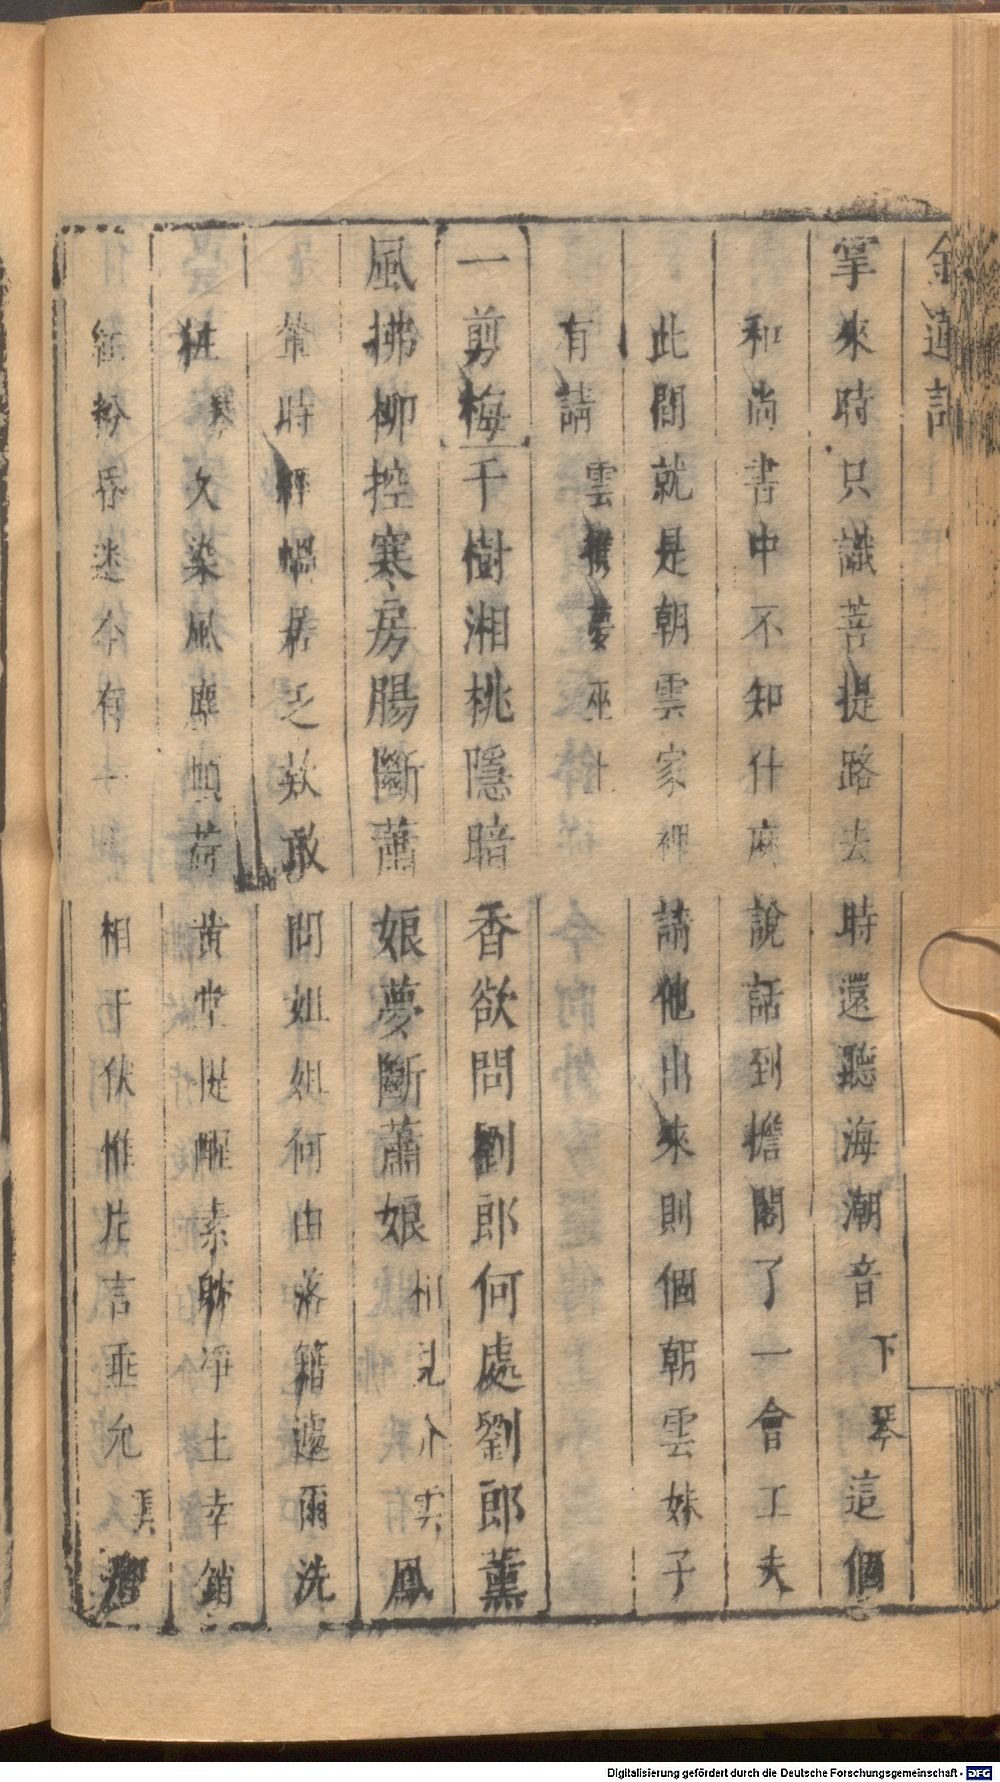 金蓮記
掌來時只識菩提路去時還聽海潮音下琴這個
和尚書中不知什麼說話到擔閣了一會工夫
此間就是朝雲家裡請他出來則個朝雲妹子
有請雲攜夢巫上
一剪梅千樹湘桃隱暗香欲問劉郎何處劉郎薰
風拂柳控寒房腸斷蕭娘夢斷蕭娘相見介雲鳳
輦時經蝸居乏欵敢問姐姐何由落籍遽爾洗
粧琴久染風塵頓荷黄堂提醒素耽淨土幸銷
紅粉昏迷今有 相干伏惟片言垂允
Digitalisierung gefördert durch die Deutsche Forschungsgemeinschaft - DFG